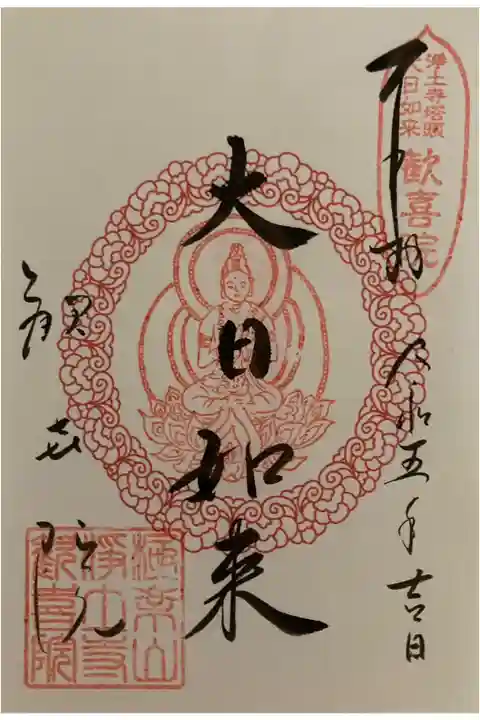 浄土寺塔頭
大日如来
歓喜院
不下拝
令和五年吉日
大日如来
歓喜院
極楽山
浄土寺
歓喜院